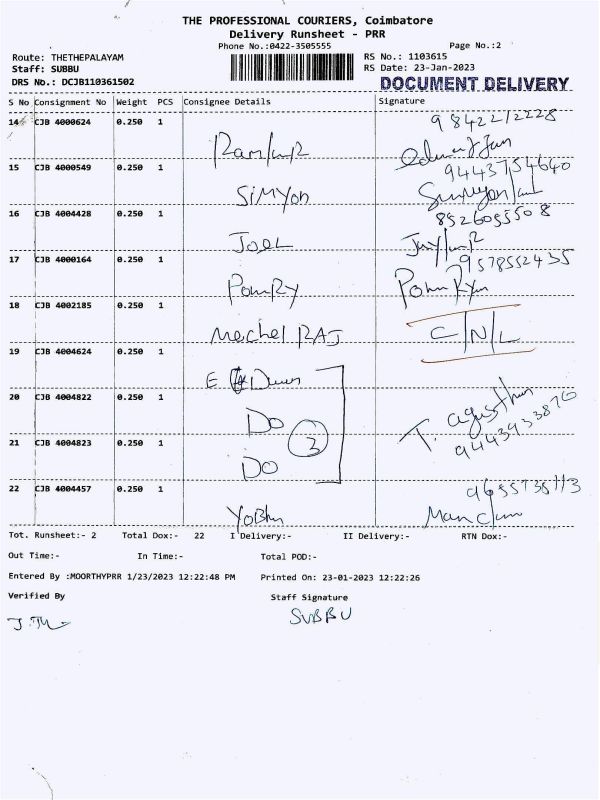 THE PROFESSIONAL COURIERS, Coimbatore
Delivery Runsheet - PRR
Phone No.:0422-3505555
Page No.:2
Route: THETHEPALAYAM
RS No.: 1103615
Staff: SUBBU
RS Date: 23-Jan-2023
DRS No.: DCJB110361502
DOCUMENT DELIVERY
S No Consignment No Weight PCS Consignee Details Signature
14 CJB 4000624 0.250 1 9842212228
15 CJB 4000549 0.250 1 SiMYon 9443754640
16 CJB 4004428 0.250 1 JOEL 8526055508
17 CJB 4000164 0.250 1 9578552435
18 CJB 4002185 0.250 1 Mechel RAJ C/N/L
19 CJB 4004624 0.250 1 E
20 CJB 4004822 0.250 1 Do 3 T.
21 CJB 4004823 0.250 1 Do 9443933870
22 CJB 4004457 0.250 1
Tot. Runsheet:- 2 Total Dox:- 22 I Delivery:- II Delivery:- RTN Dox:-
Out Time:- In Time:- Total POD:-
Entered By :MOORTHYPRR 1/23/2023 12:22:48 PM Printed On: 23-01-2023 12:22:26
Verified By Staff Signature
SUBBU